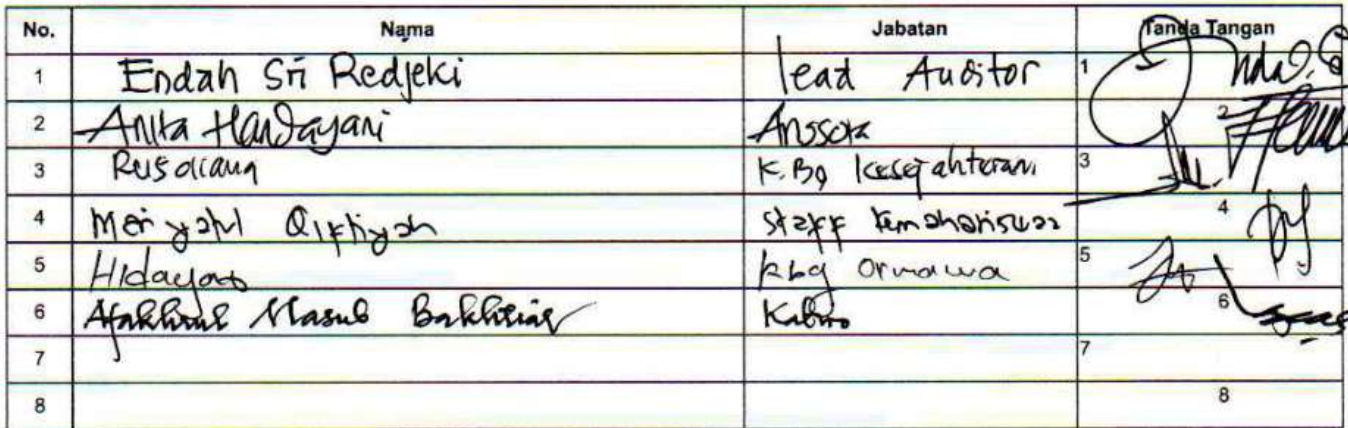 No. Nama Jabatan Tanda Tangan
1 Endah Sri Redjeki lead Auditor 1
2 Anita Handayani 2
3 Rusdiana K. Bg Kesejahteraan 3
4 Qiftiyah staff kemahasiswaan 4
5 Hidayat kbg ormawa 5
6 Masub Bakhtiar Kabiro 6
7 7
8 8